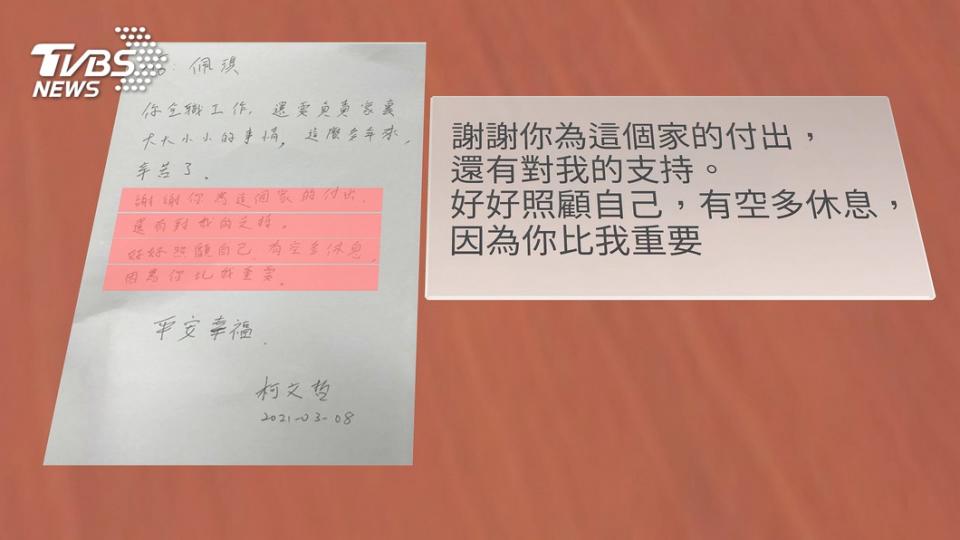 TVBS
NEWS
To: 佩琪
你全職工作，還要負責家裏
大大小小的事情，這麼多年來，
辛苦了。
謝謝你為這個家的付出，
還有對我的支持。
好好照顧自己，有空多休息，
因為你比我重要。
平安幸福。
柯文哲
2021-03-08
謝謝你為這個家的付出，
還有對我的支持。
好好照顧自己，有空多休息，
因為你比我重要